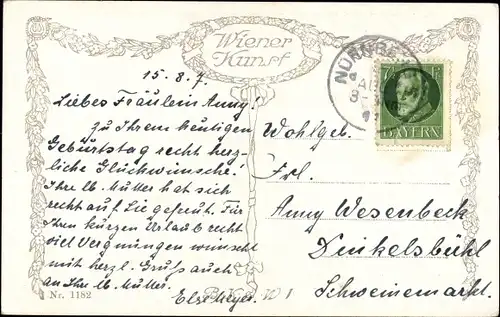 Wiener
Kunst
15.8.7.
NÜRNB
7½ Pf.
BAYERN
Liebes Fräulein Anny!
Zu Ihrem heutigen
Geburtstag recht herz-
liche Glückwünsche!
Ihre lb. Mutter hat sich
recht auf Sie gefreut. Für
Ihren kurzen Urlaub recht
viel Vergnügen wünscht
mit herzl. Gruß auch
an Ihre lb. Mutter.
Else Meyer.
Wohlgeb.
Frl.
Anny Wesenbeck
Dinkelsbühl
Schweinemarkt.
Nr. 1182
B.K.W.I